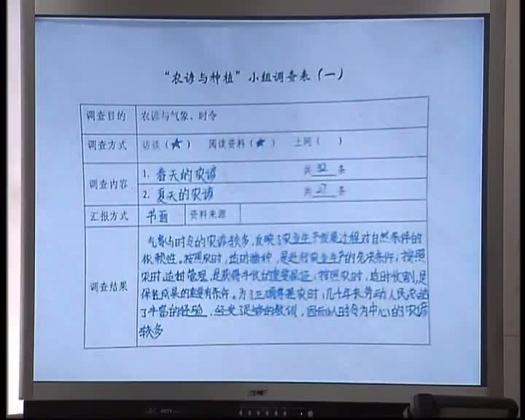 “农谚与种植”小组调查表（一）
调查目的 农谚与气象、时令
调查方式 访谈（★） 阅读资料（★） 上网（ ）
调查内容 1. 春天的农谚 共 32 条
2. 夏天的农谚 共 27 条
汇报方式 书面 资料来源
调查结果
气象与时令的农谚较多，反映了农业生产发展过程对自然条件的
依赖性。按照农时，适时播种，是进行农业生产的先决条件；按照
农时，适时管理，是获得丰收的重要保证；按照农时，适时收割，是
保住成果的重要条件。为了正确掌握农时，几千年来劳动人民积累
了丰富的经验，经受了足够的教训，因而以时令为中心的农谚
较多